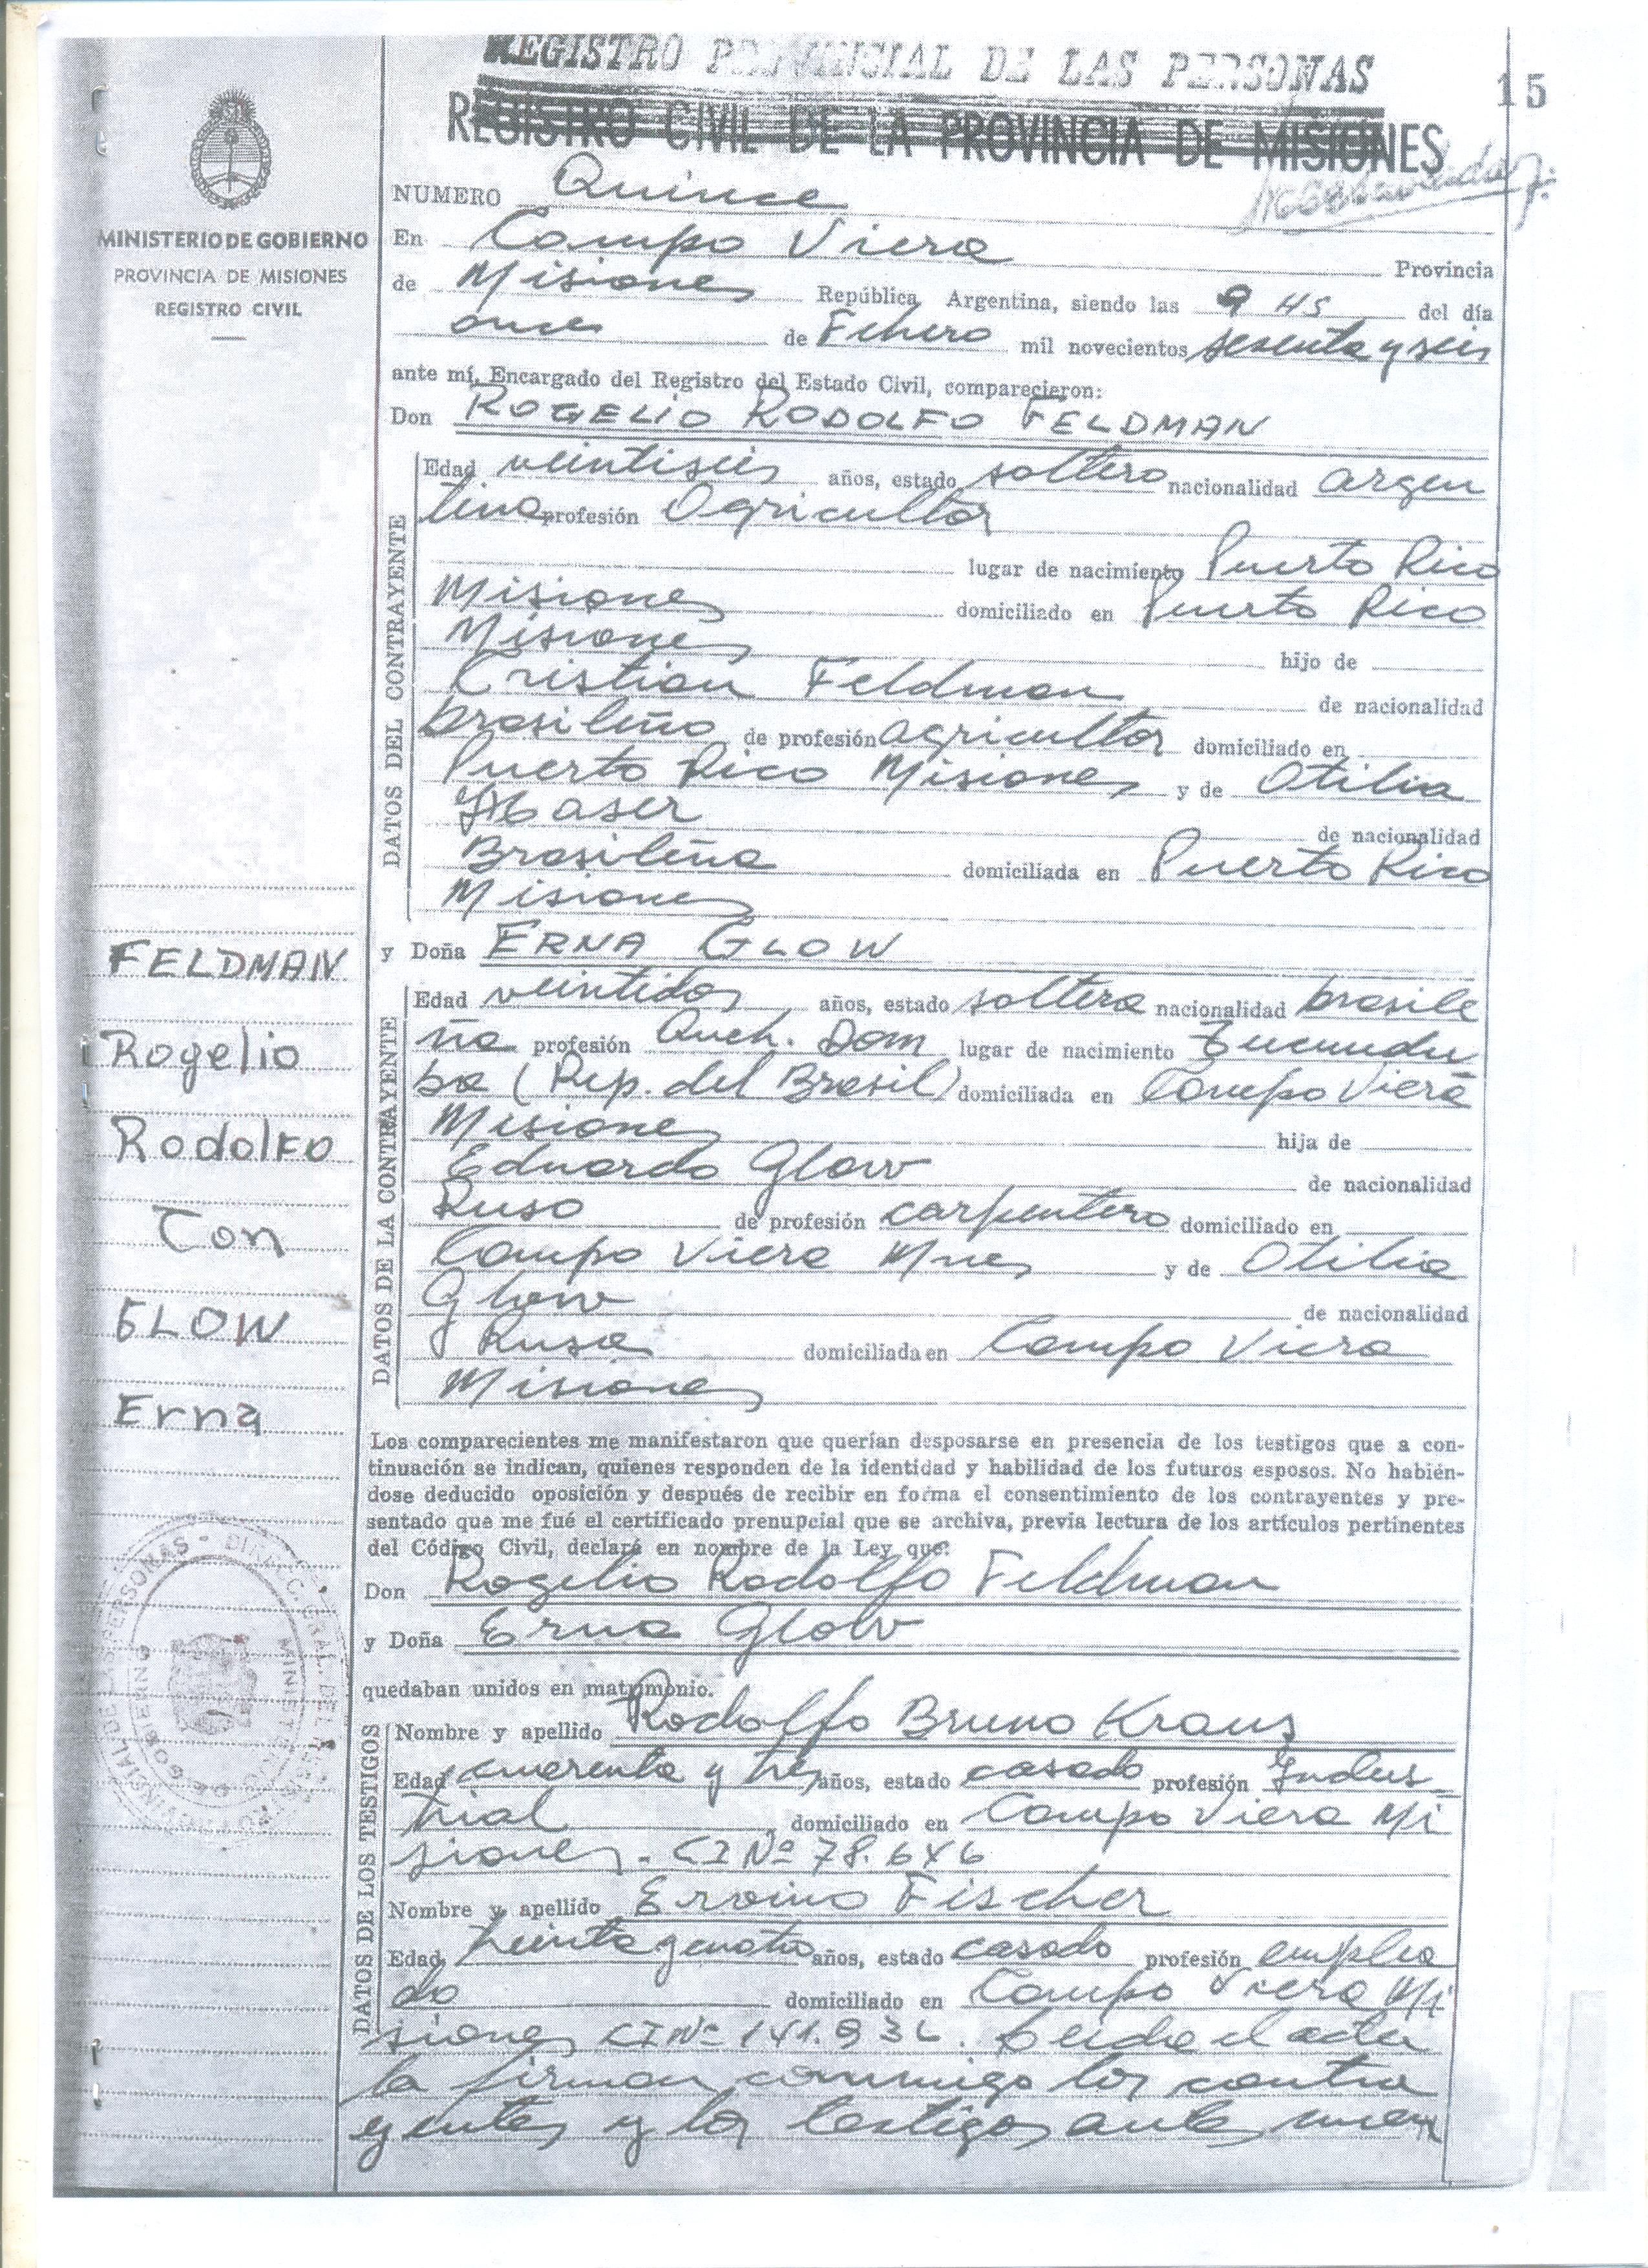 REGISTRO PROVINCIAL DE LAS PERSONAS
15
REGISTRO CIVIL DE LA PROVINCIA DE MISIONES
MINISTERIO DE GOBIERNO
PROVINCIA DE MISIONES
REGISTRO CIVIL
NUMERO Quince
En Campo Viera Provincia
de Misiones República Argentina, siendo las 9 HS del día
once de Febrero mil novecientos sesenta y seis
ante mí, Encargado del Registro del Estado Civil, comparecieron:
Don ROGELIO RODOLFO FELDMAN
DATOS DEL CONTRAYENTE
Edad veintiseis años, estado soltero nacionalidad argen
tina profesión Agricultor
lugar de nacimiento Puerto Rico
Misiones domiciliado en Puerto Rico
Misiones hijo de
Cristian Feldman de nacionalidad
brasileño de profesión agricultor domiciliado en
Puerto Rico Misiones y de Otilia
Haser de nacionalidad
Brasileña domiciliada en Puerto Rico
Misiones
y Doña ERNA GLOW
DATOS DE LA CONTRAYENTE
Edad veintidos años, estado soltera nacionalidad brasile
ña profesión Queh. Dom lugar de nacimiento Tucundu
ba (Rep. del Brasil) domiciliada en Campo Viera
Misiones hija de
Eduardo Glow de nacionalidad
Ruso de profesión carpintero domiciliado en
Campo Viera Mnes y de Otilia
Glow de nacionalidad
Rusa domiciliada en Campo Viera
Misiones
FELDMAN
Rogelio
Rodolfo
Con
GLOW
Erna
Los comparecientes me manifestaron que querían desposarse en presencia de los testigos que a con-
tinuación se indican, quienes responden de la identidad y habilidad de los futuros esposos. No habién-
dose deducido oposición y después de recibir en forma el consentimiento de los contrayentes y pre-
sentado que me fué el certificado prenupcial que se archiva, previa lectura de los artículos pertinentes
del Código Civil, declaré en nombre de la Ley que:
Don Rogelio Rodolfo Feldman
y Doña Erna Glow
quedaban unidos en matrimonio.
DATOS DE LOS TESTIGOS
Nombre y apellido Rodolfo Bruno Kraus
Edad cuarenta y tres años, estado casado profesión Indus
trial domiciliado en Campo Viera Mi
siones. CI Nº 78.646
Nombre y apellido Ervino Fischer
Edad treinta y cuatro años, estado casado profesión emplea
do domiciliado en Campo Viera Mi
siones CI Nº 141.936. Leida el acta
la firman conmigo los contra
yentes y los testigos antes men